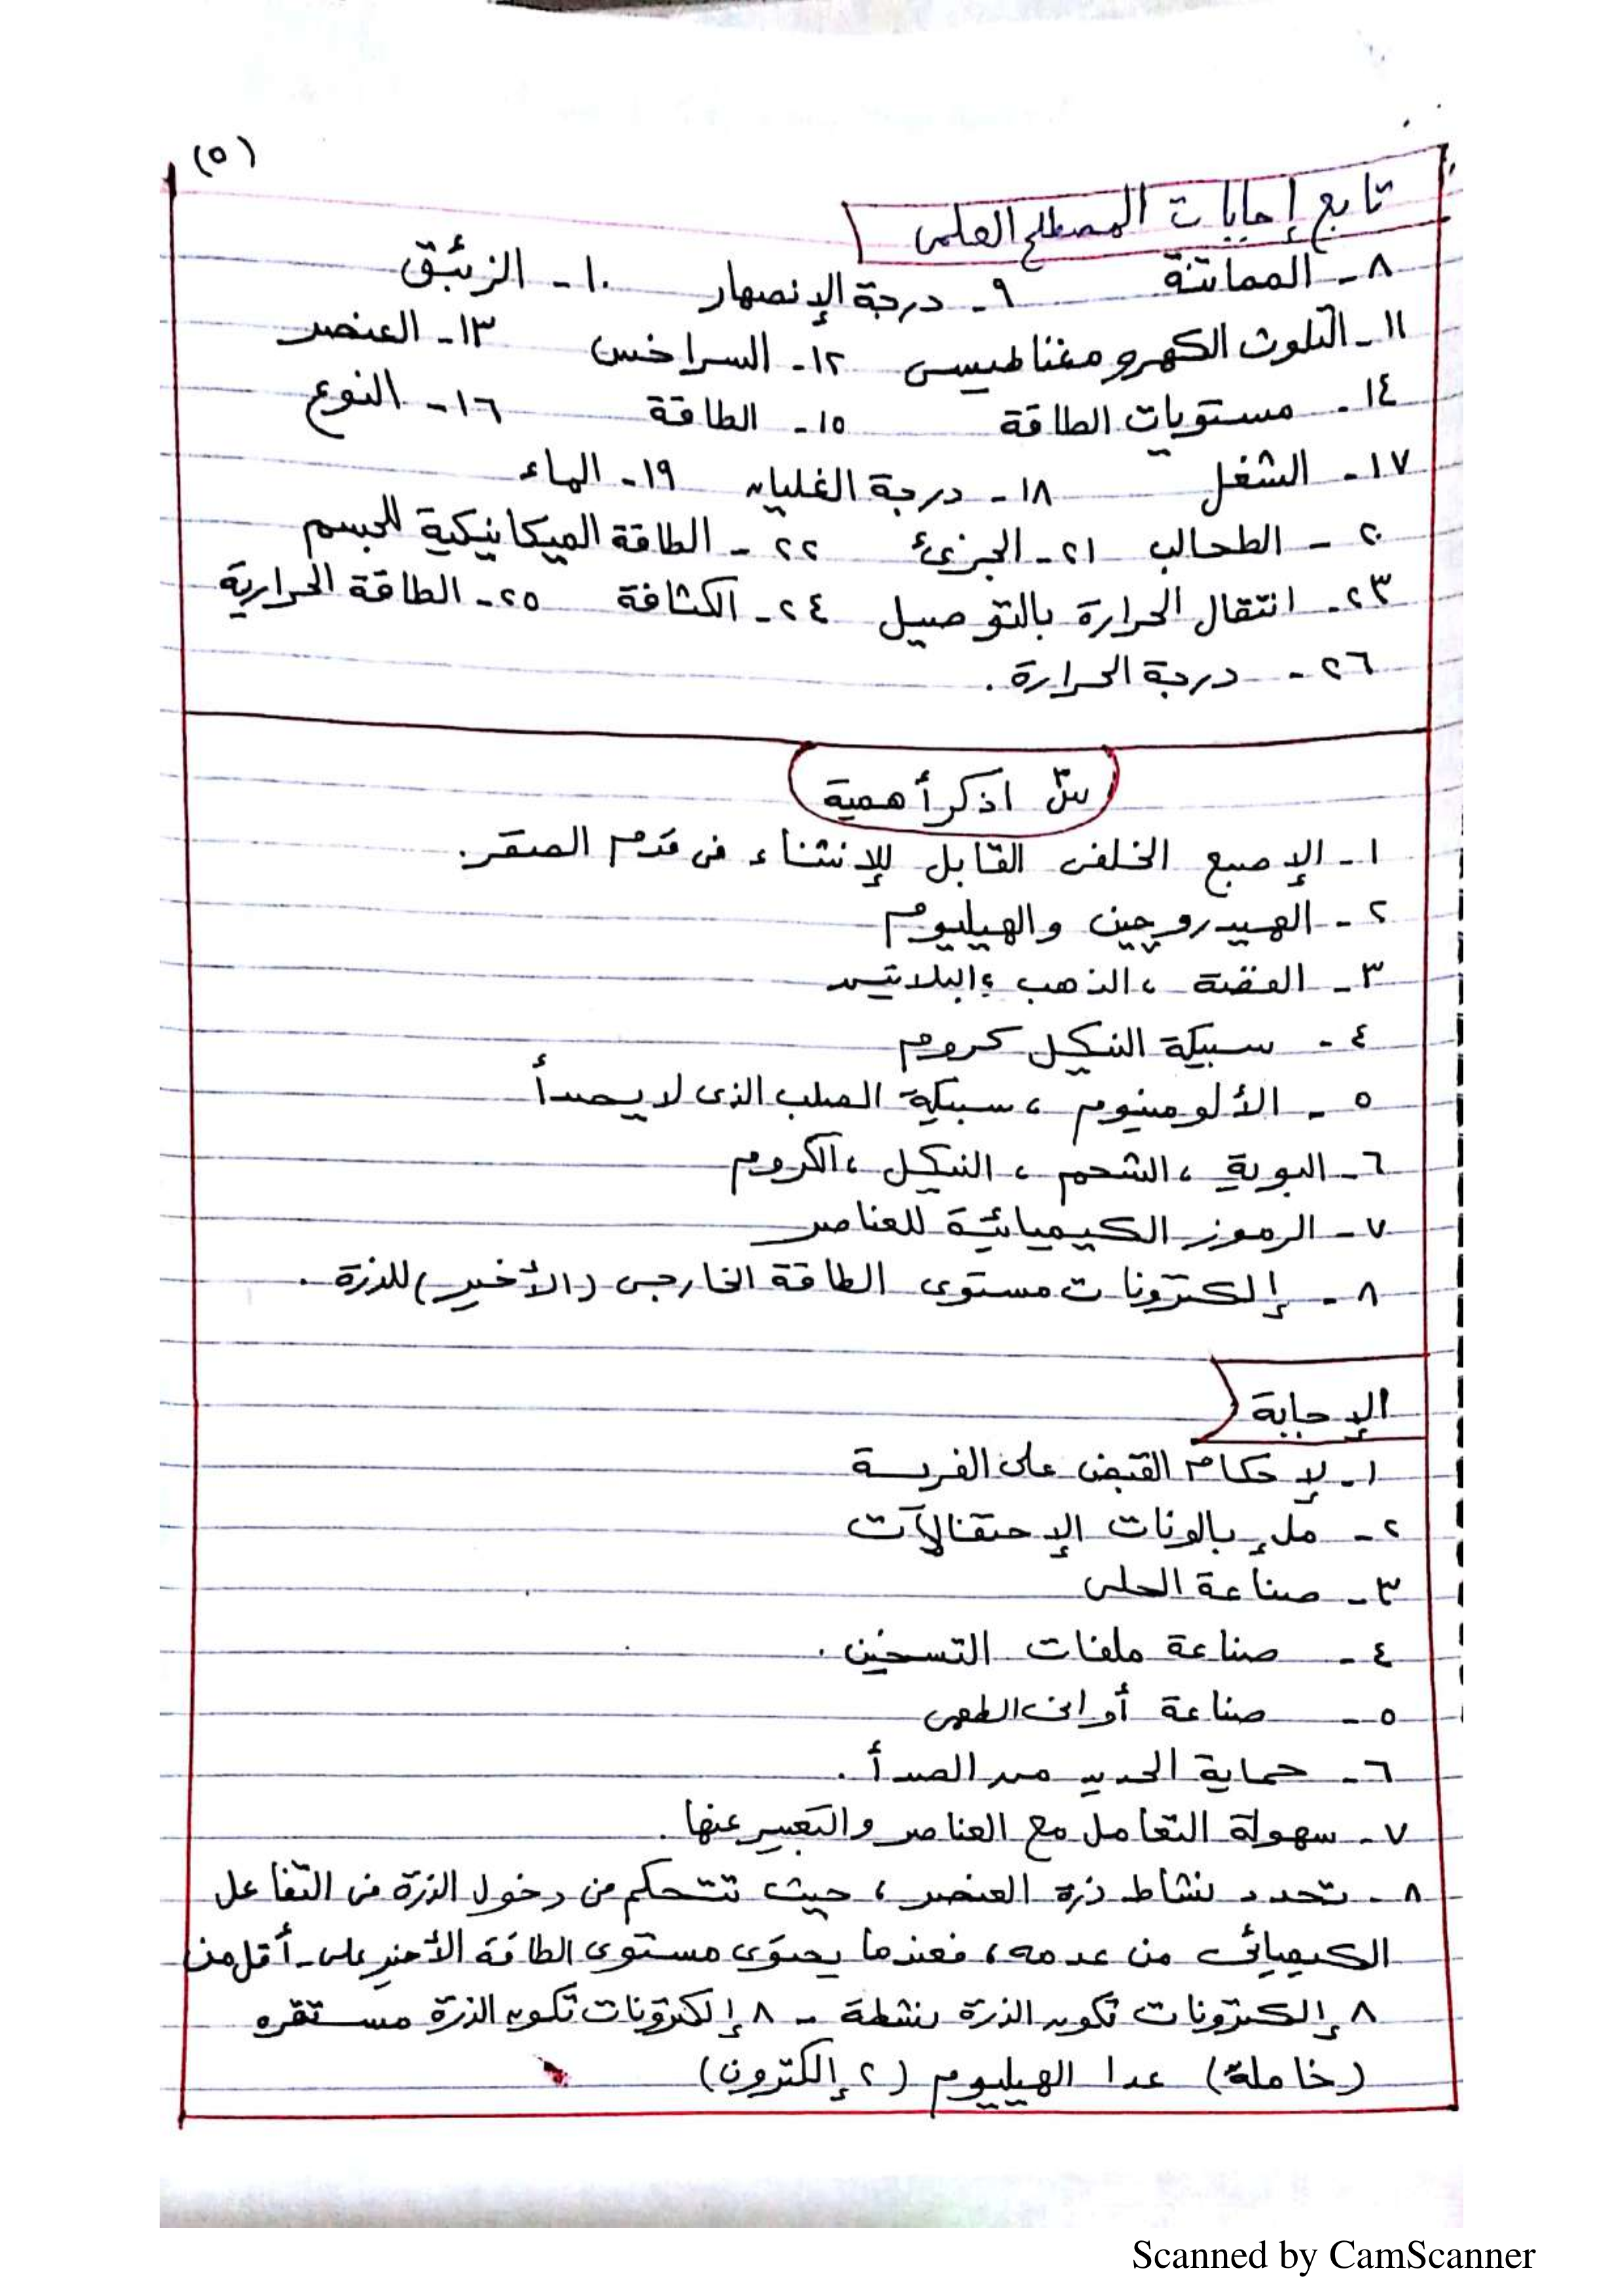 (٥)
تابع إجابات المصطلح العلمى
٨ - المماتنة ٩ - درجة الإنصهار ١٠ - الزئبق
١١ - التلوث الكهرومغناطيسى ١٢ - السراخس ١٣ - العنصر
١٤ - مستويات الطاقة ١٥ - الطاقة ١٦ - النوع
١٧ - الشغل ١٨ - درجة الغليان ١٩ - الماء
٢٠ - الطحالب ٢١ - الجزئ ٢٢ - الطاقة الميكانيكية للجسم
٢٣ - انتقال الحرارة بالتوصيل ٢٤ - الكثافة ٢٥ - الطاقة الحرارية
٢٦ - درجة الحرارة .
س٣ اذكر أهمية
١ - الإصبع الخلفى القابل للإنثناء فى قدم الصقر .
٢ - الهيدروچين والهيليوم
٣ - الفضة ، الذهب ، البلاتين
٤ - سبيكة النيكل كروم
٥ - الألومنيوم ، سبيكة الصلب الذى لا يصدأ
٦ - البوية ، الشحم ، النيكل ، الكروم
٧ - الرموز الكيميائية للعناصر
٨ - إلكترونات مستوى الطاقة الخارجى (الأخير) للذرة .
الإجابة
١ - لإحكام القبض على الفريسة
٢ - ملء بالونات الإحتفالات
٣ - صناعة الحلى
٤ - صناعة ملفات التسخين .
٥ - صناعة أوانى الطهى
٦ - حماية الحديد من الصدأ .
٧ - سهولة التعامل مع العناصر والتعبير عنها .
٨ - تحدد نشاط ذرة العنصر ، حيث تتحكم من دخول الذرة فى التفاعل
الكيميائى من عدمه ، فعندما يحتوى مستوى الطاقة الأخير على أقل من
٨ إلكترونات تكون الذرة نشطة - ٨ إلكترونات تكون الذرة مستقره
(خاملة) عدا الهيليوم (٢ إلكترون)
Scanned by CamScanner